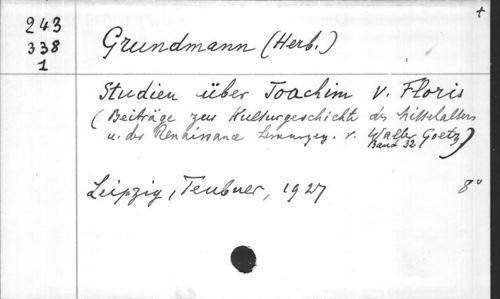 243
338
1
+
Grundmann (Herb.)
Studien über Joachim v. Floris
(Beiträge zur Kulturgeschichte des Mittelalters
u. der Renaissance herausgeg. v. Walter Goetz)
Band 32
Leipzig, Teubner, 1927 8°